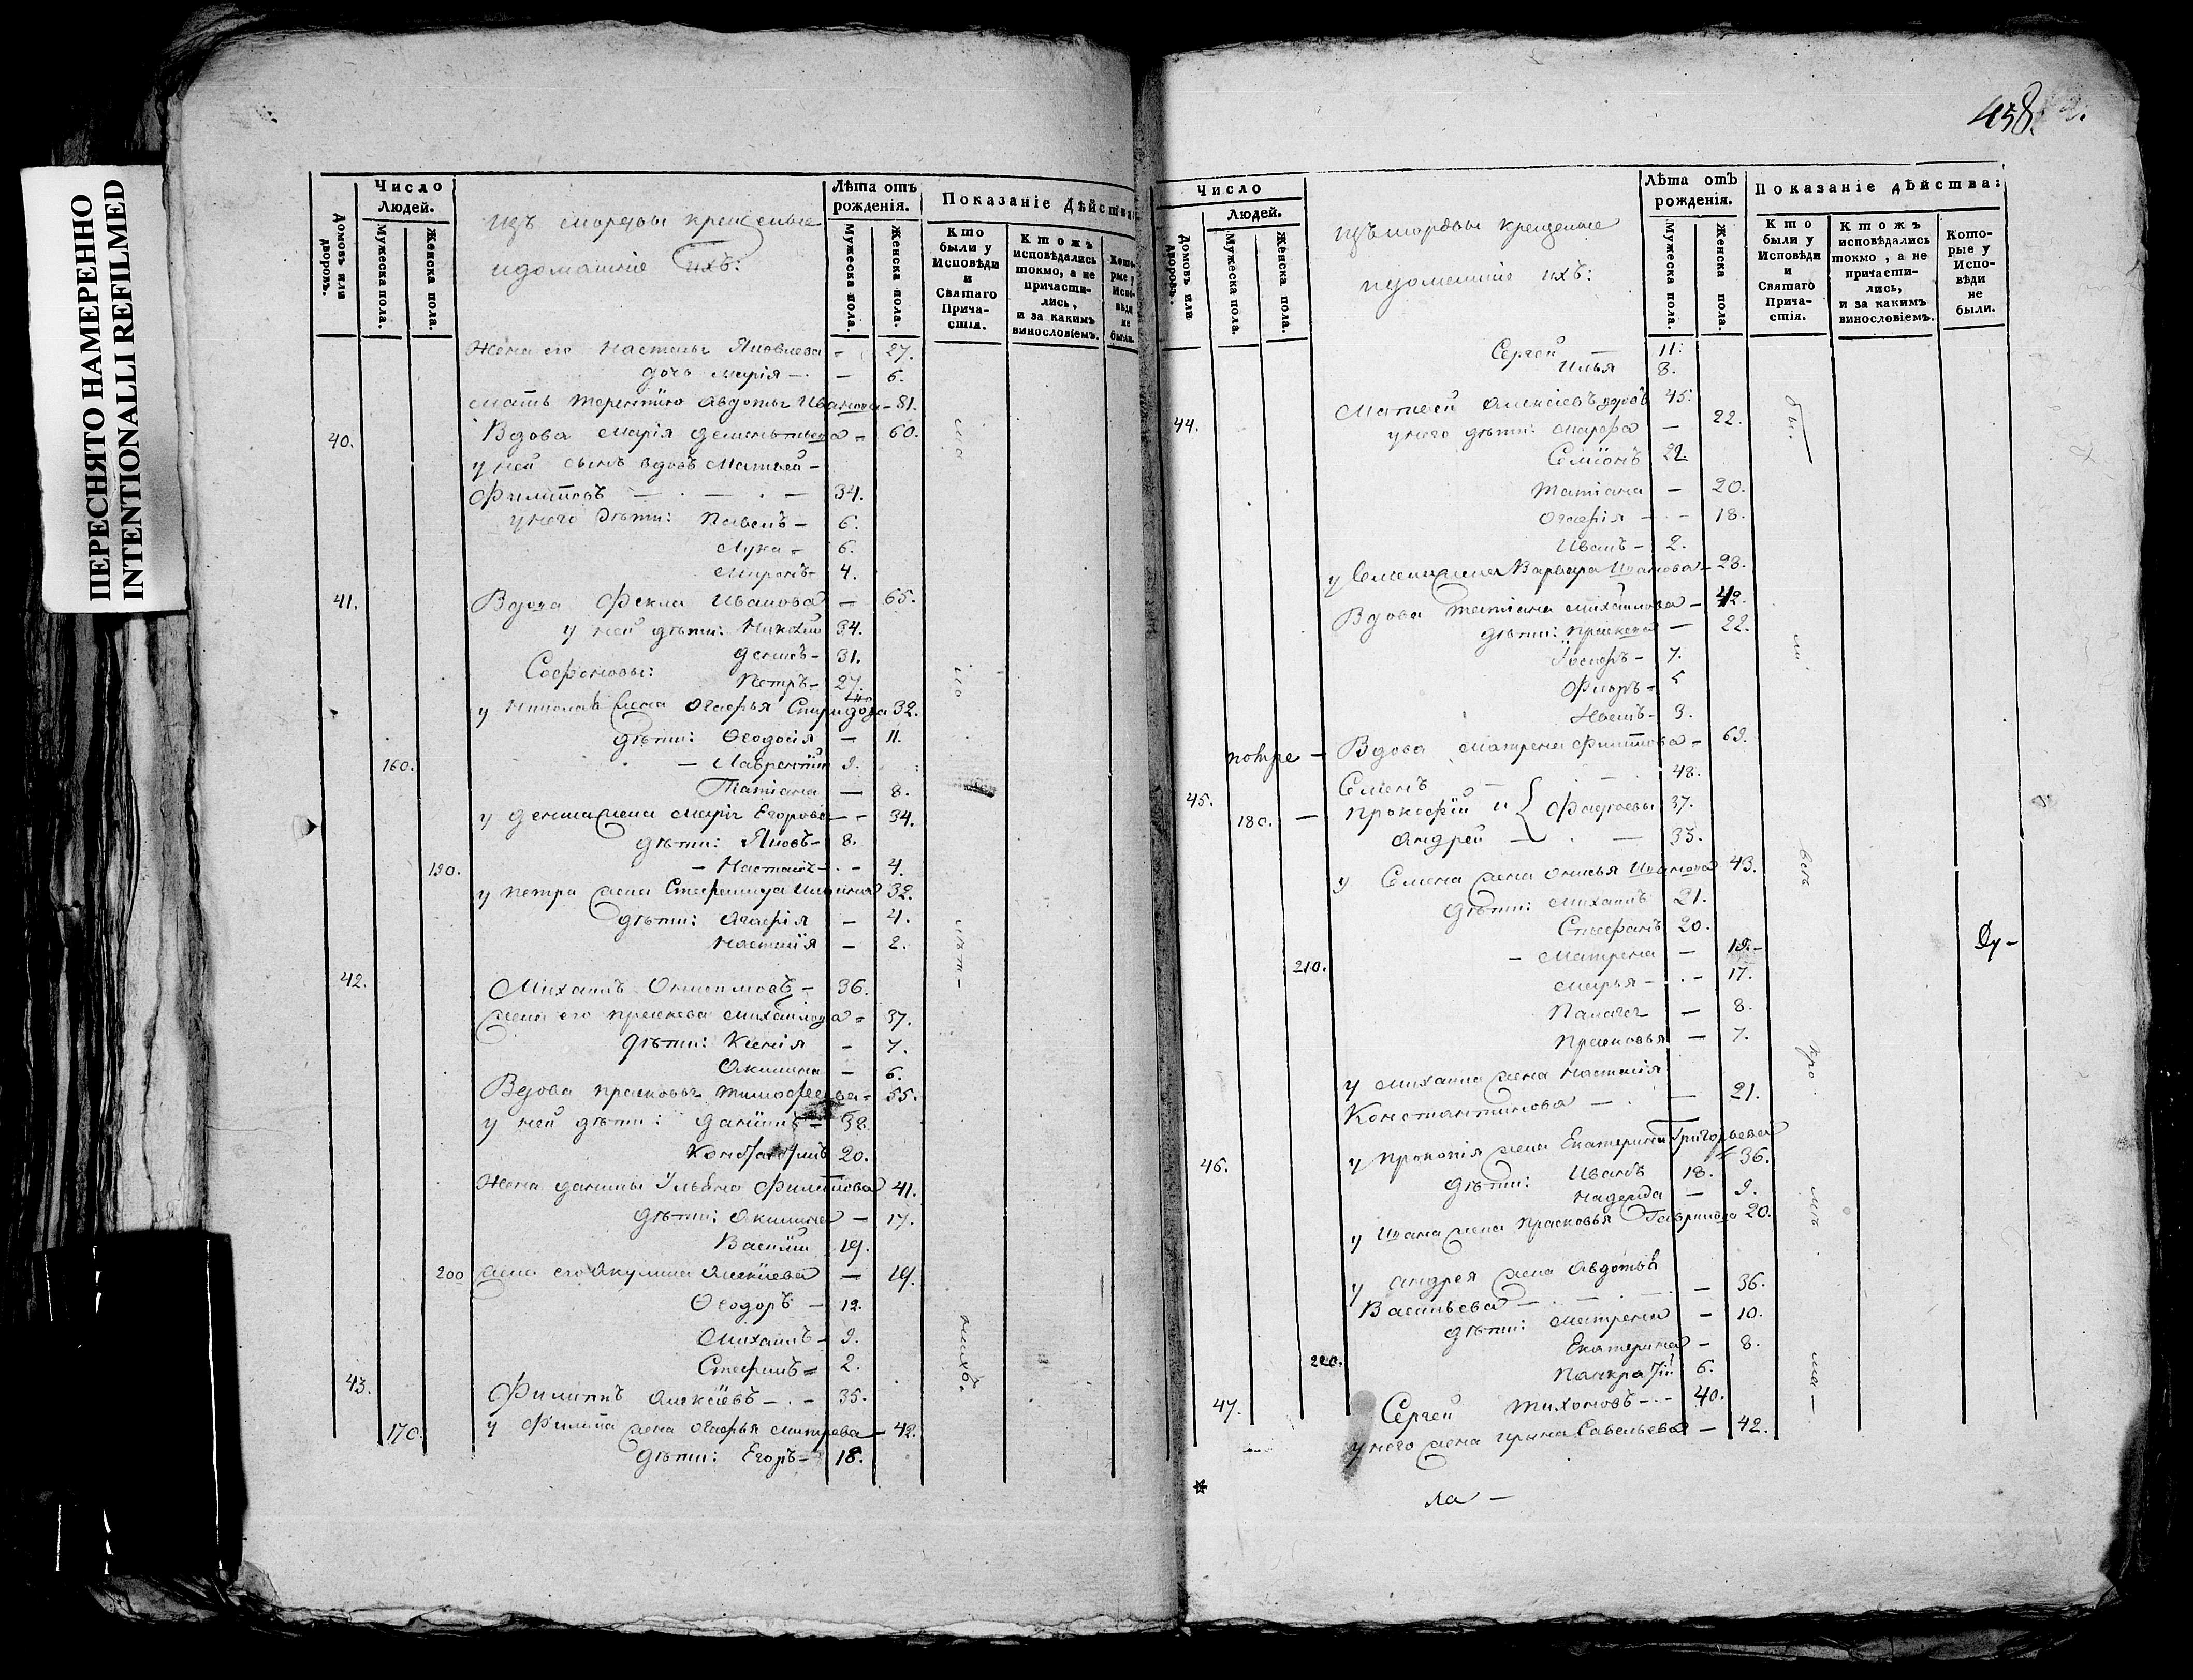 ПЕРЕСНЯТО НАМЕРЕННО
INTENTIONALLI REFILMED
Домовъ или дворовъ.
Число Людей.
Мужеска пола.
Женска пола.
изъ мордвы крещеные
и домашніе ихъ:
Лѣта отъ рожденія.
Мужеска пола.
Женска пола.
Показаніе Дѣйства
Кто были у Исповѣди и Святаго Причастія.
Ктожъ исповѣдались токмо, а не причастились, и за какимъ винословіемъ.
Которые у Исповѣди не были.
Жена его Настасья Яковлева - 27.
дочь Марія - - 6.
Мать Терентію Авдотья Иванова - 81.
40. Вдова Марія Дементьева - 60.
у ней сынъ вдовъ Матвей -
Филиповъ - - - 34.
у него дѣти: Павелъ - 6.
Лука - 6.
Миронъ - 4.
41. Вдова Фекла Иванова - 65.
у ней дѣти: Николай 34.
Денисъ - 31.
Софроновы: Петръ - 27.
у Николая жена Огафья 32.
дѣти: Ѳеодосія - 11.
160. - Лаврентій 9.
Татіана - 8.
у Дениса жена Марья Егорова - - 34.
дѣти: Яковъ - 8.
190. - Настасья - - 4.
у Петра жена Стефанида 32.
дѣти: Агафія - 4.
Настасія - 2.
42. Михаилъ - 36.
жена его Праскева Михайлова - 37.
дѣти: Ксенія - 7.
Акилина - 6.
Вдова Прасковья Тимофеева - 55.
у ней дѣти: Данилъ - 38.
20.
Жена Данилы Ульяна Филипова 41.
дѣти: Акилина - 17.
Василій 19.
200 жена его Акулина Алексіева - 19.
Ѳеодоръ - 12.
Михаилъ - 9.
Стефанъ - 2.
43. Филиппъ Алексіевъ - . - 35.
170. у Филипа жена Огафья - 42.
дѣти: Егоръ - 18.
438.
Число Людей.
Домовъ или дворовъ.
Мужеска пола.
Женска пола.
изъ мордвы крещеные
и домашніе ихъ:
Лѣта отъ рожденія.
Мужеска пола.
Женска пола.
Показаніе дѣйства:
Кто были у Исповѣди и Святаго Причастія.
Ктожъ исповѣдались токмо, а не причастились, и за какимъ винословіемъ.
Которые у Исповѣди не были.
Сергей - 11.
Илья 8.
44. Матвей Алексіевъ вдовъ 45.
у него дѣти: Марфа - 22.
Семіонъ 22.
Татіана - 20.
Огафія - - 18.
Иванъ - 2.
у Семена жена Варвара Иванова - 23.
Вдова Татіана Михайлова - 42.
дѣти: Праскева - 22.
7.
5
3.
Вдова Матрена Филипова - 63.
45. Семенъ - - 48.
180. - Прокофій и { Фадѣевы 37.
Андрей - . - 33.
у Семена жена Иванова 43.
дѣти: Михаилъ 21.
Стефанъ 20.
210. - Матрена - 19. -
Марья - . - 17.
Палагея - 8.
Прасковья - 7.
у Михаила жена Настасія
Константинова - . - 21.
46. у Прокопія жена Екатерина Григорьева 36.
дѣти: Иванъ 18.
Надежда - 9.
у Ивана жена Прасковья Гаврилова 20.
у Андрея жена Авдотья
Васильева - . - . - 36.
дѣти: Матрена - 10.
Екатерина - 8.
220. Панкратій 6.
47. Сергей Тихоновъ - . - 40.
у него жена Ирына Савельева - 42.
ла -